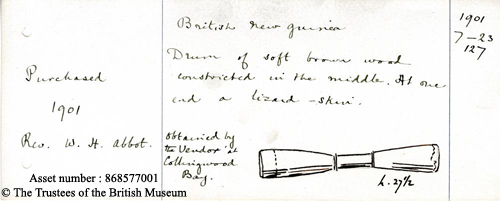 British New Guinea
1901
7-23
127
Drum of soft brown wood
constricted in the middle. At one
end a lizard-skin.
Purchased
1901
Rev. W. H. Abbot.
Obtained by
the Vendor at
Collingwood
Bay.
L. 27½
Asset number : 868577001
© The Trustees of the British Museum